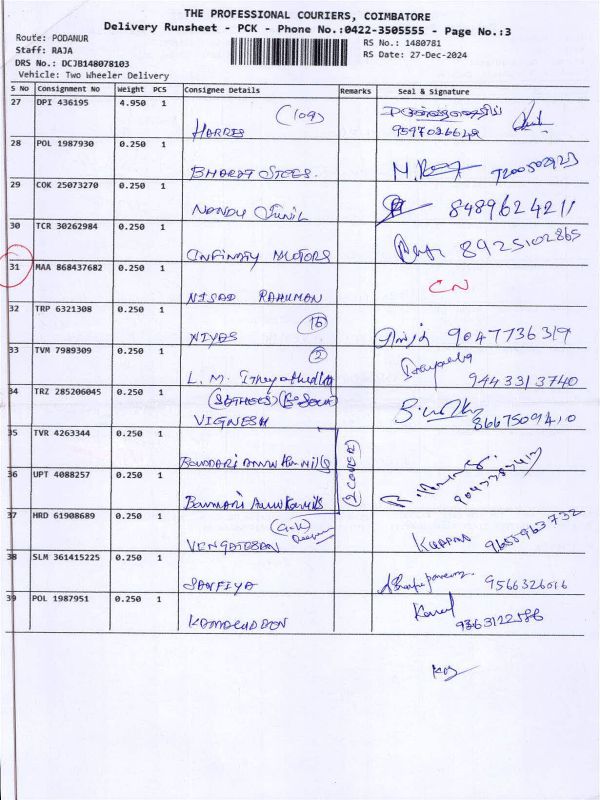 THE PROFESSIONAL COURIERS, COIMBATORE
Delivery Runsheet - PCK - Phone No.:0422-3505555 - Page No.:3
Route: PODANUR
Staff: RAJA
DRS No.: DCJB148078103
Vehicle: Two Wheeler Delivery
RS No.: 1480781
RS Date: 27-Dec-2024
S No Consignment No Weight PCS Consignee Details Remarks Seal & Signature
27 DPI 436195 4.950 1
(109)
HARRES
9597026649
28 POL 1987930 0.250 1
BHARAT STEES.
7200502923
29 COK 25073270 0.250 1
NANDU SUNIL
8489624211
30 TCR 30262984 0.250 1
INFINITY MOTORS
8925102865
31 MAA 868437682 0.250 1
NISAD RAHUMAN
CN
32 TRP 6321308 0.250 1
(16)
NIYAS
9047736319
33 TVM 7989309 0.250 1
(2)
L. M.
9443313740
34 TRZ 285206045 0.250 1
VIGNESH
8667509410
35 TVR 4263344 0.250 1
(2 COVER)
36 UPT 4088257 0.250 1
37 HRD 61908689 0.250 1
VENGATESAN
KUPPAN 9655963732
38 SLM 361415225 0.250 1
SANFIYA
9566326016
39 POL 1987951 0.250 1
KAMALUDDON
9363122586